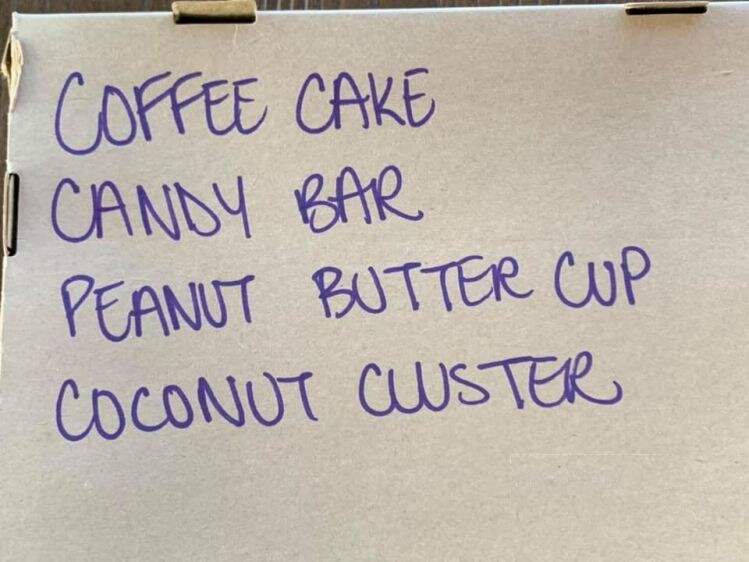 COFFEE CAKE
CANDY BAR
PEANUT BUTTER CUP
COCONUT CLUSTER